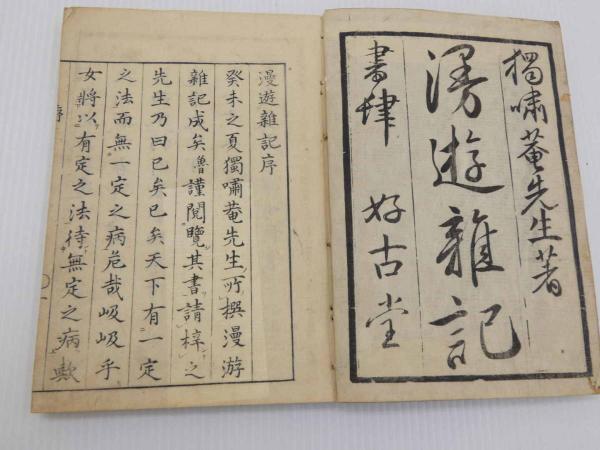 獨嘯菴先生著
漫遊雜記
書肆 好古堂
漫遊雜記序
癸未之夏獨嘯菴先生所撰漫游
雜記成矣魯謹閱覽其書請梓之
先生乃曰已矣已矣天下有一定
之法而無一定之病危哉岌岌乎
女將以有定之法待無定之病歟
序